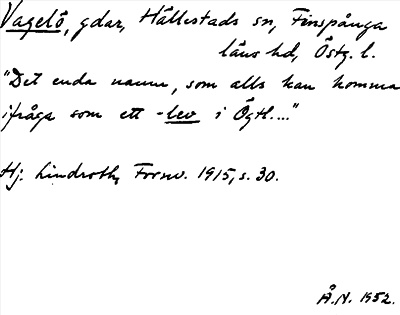 Vagelö, gdar, Hällestads sn, Finspånga
läns hd, Östg. l.
"Det enda namn, som alls kan komma
ifråga som ett -lev i Ögtl...."
Hj. Lindroth, Fornv. 1915, s. 30.
Å.N. 1952.